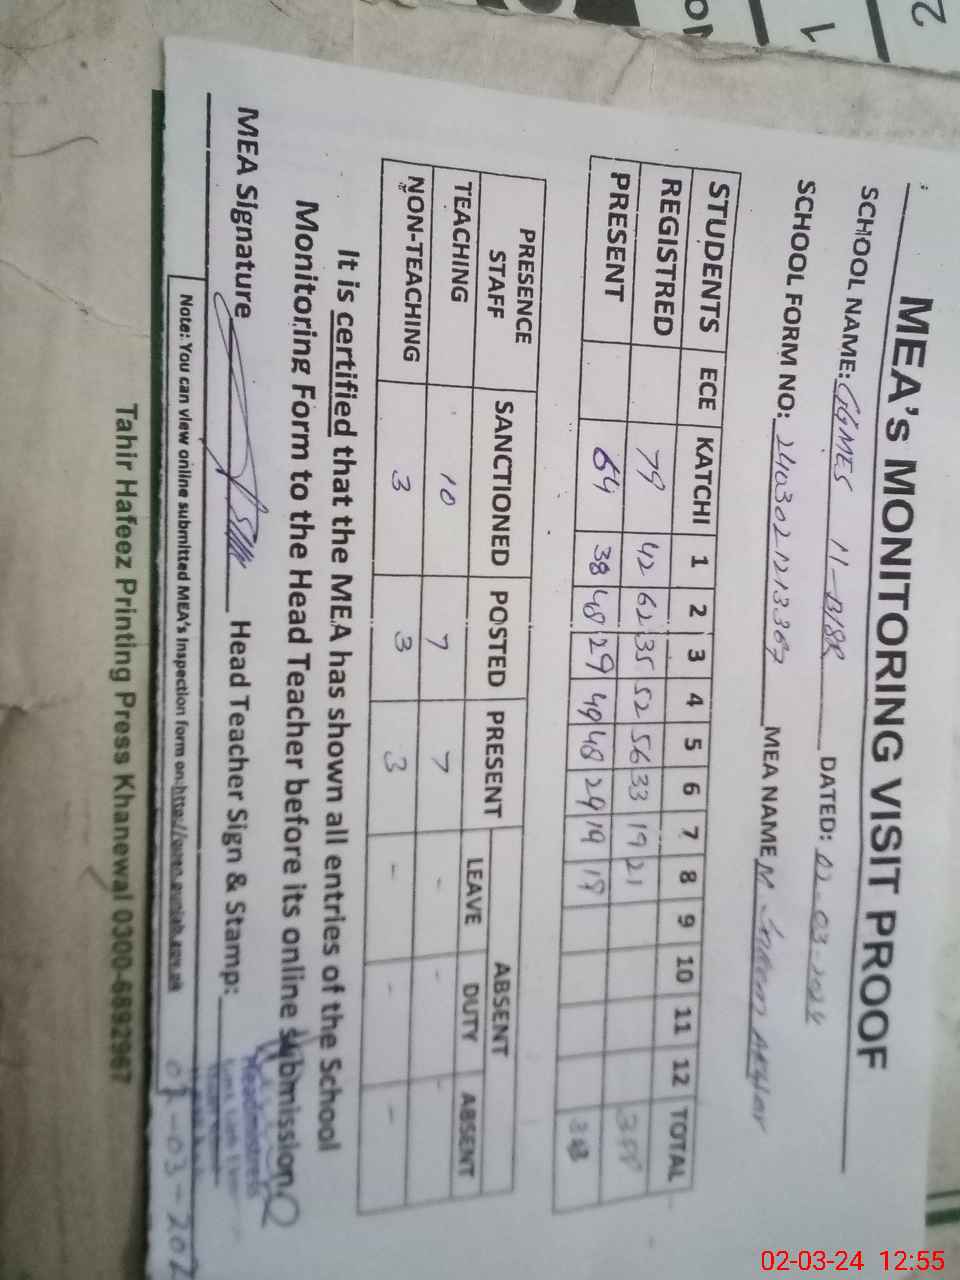 MEA's MONITORING VISIT PROOF
SCHOOL NAME: GGMES 11-B/8R DATED: 02-03-2024
SCHOOL FORM NO: MEA NAME M.
STUDENTS ECE KATCHI 1 2 3 4 5 6 7 8 9 10 11 12 TOTAL
REGISTRED 79 42 62 35 52 56 33 19 21
PRESENT 64 38 48 29 49 48 29 19 19
PRESENCE STAFF SANCTIONED POSTED PRESENT ABSENT
LEAVE DUTY ABSENT
TEACHING 10 7 7 - -
NON-TEACHING 3 3 3 - - -
It is certified that the MEA has shown all entries of the School
Monitoring Form to the Head Teacher before its online submission.
MEA Signature Head Teacher Sign & Stamp:
Headmistress
02-03-202
Note: You can view online submitted MEA's Inspection form on:
Tahir Hafeez Printing Press Khanewal 0300-6892967
2
1
02-03-24 12:55